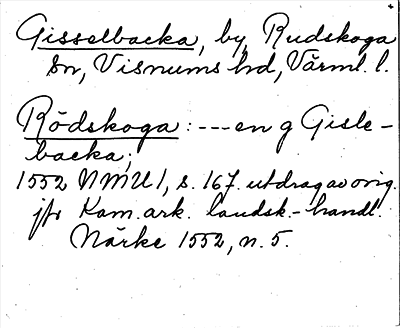 Gisselbacka, by, Rudskoga
sn, Visnums hd, Värml. l.
Rödskoga: --- en g Gisle-
backa;
1552 NMU 1, s. 167. utdrag av orig.
jfr Kam. ark. landsk.-handl.
Närke 1552, n. 5.